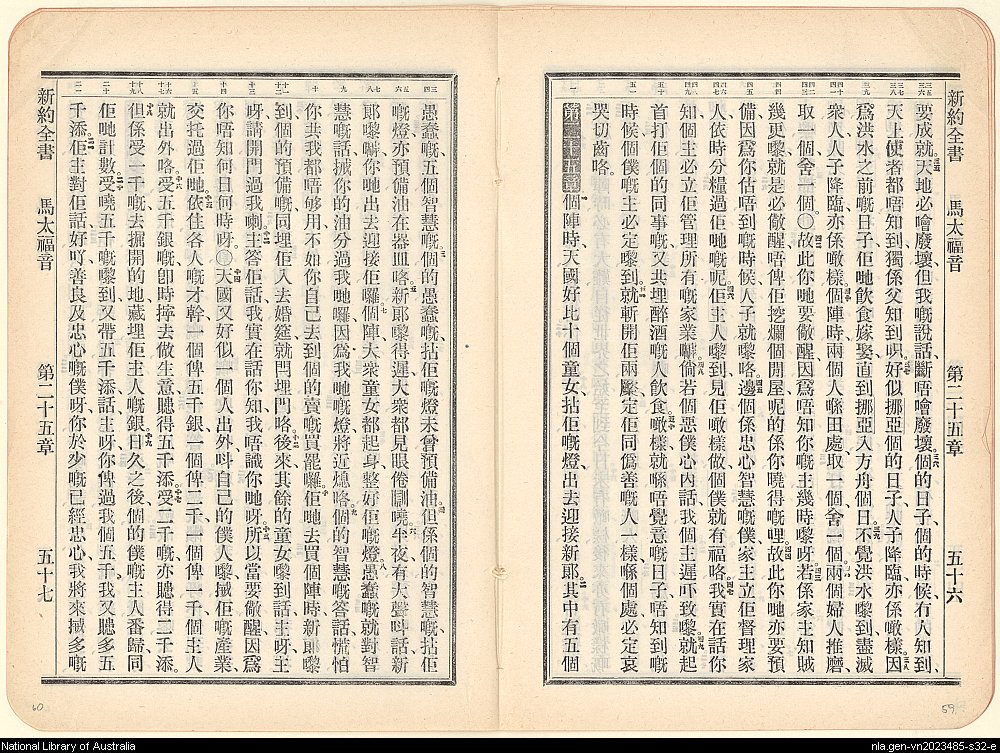 新約全書 馬太福音 第二十五章 五十六
要成就天地必噲廢壞但我嘅說話斷唔噲廢壞個的日子個的時候冇人知到
天上使者都唔知到獨係父知到呮好似挪亞個的日子人子降臨亦係噉樣因
爲洪水之前嘅日子佢哋飲食嫁娶直到挪亞入方舟個日不覺洪水嚟到盡滅
衆人人子降臨亦係噉樣個陣時兩個人喺田處取一個舍一個兩個婦人推磨
取一個舍一個〇故此你哋要儆醒因爲唔知你嘅主幾時嚟呀若係家主知賊
幾更嚟就是必儆醒唔俾佢挖爛個間屋呢的係你曉得嘅哩故此你哋亦要預
備因爲你估唔到嘅時候人子就嚟咯邊個係忠心智慧嘅僕家主立佢督理家
人依時分糧過佢哋嘅呢佢主人嚟到見佢噉樣做個僕就有福咯我實在話你
知個主必立佢管理所有嘅家業嚹倘若個惡僕心內話我個主遲吓致嚟就起
首打佢個的同事嘅又共埋醉酒嘅人飲食噉樣就喺唔覺意嘅日子唔知到嘅
時候個僕嘅主必定嚟到就斬開佢兩橛定佢同僞善嘅人一樣喺個處必定哀
哭切齒咯
第二十五章個陣時天國好比十個童女拈佢嘅燈出去迎接新郞其中有五個
愚蠢嘅五個智慧嘅個的愚蠢嘅拈佢嘅燈未曾預備油但係個的智慧嘅拈佢
嘅燈亦預備油在器皿咯新郞嚟得遲大衆都見眼倦瞓嘵半夜有大聲嘩話新
郞嚟嚹你哋出去迎接佢囉個陣大衆童女都起身整好佢嘅燈愚蠢嘅就對智
慧嘅話搣你的油分過我哋囉因爲我哋嘅燈將近熄咯個的智慧嘅答話慌怕
你共我都唔够用不如你自己去到個的賣嘅買罷囉佢哋去買個陣時新郞嚟
到個的預備嘅同埋佢入去婚筵就閂埋門咯後來其餘的童女嚟到話主呀主
呀請開門過我喇主答佢話我實在話你知我唔識你哋呀所以當要儆醒因爲
你唔知何日何時呀〇天國又好似一個人出外呌自己的僕人嚟搣佢嘅產業
交托過佢哋依住各人嘅才幹一個俾五千銀一個俾二千一個俾一千個主人
就出外咯受五千銀嘅卽時㩒去做生意贃得五千添受二千嘅亦贃得二千添
但係受一千嘅去掘開的地藏埋佢主人嘅銀日久之後個的僕嘅主人番歸同
佢哋計數受嘵五千嘅嚟到又帶五千添話主呀你俾過我個五千我又贃多五
千添佢主對佢話好吖善良及忠心嘅僕呀你於少嘅已經忠心我將來搣多嘅
新約全書 馬太福音 第二十五章 五十七
59
60
National Library of Australia
nla.gen-vn2023485-s32-e